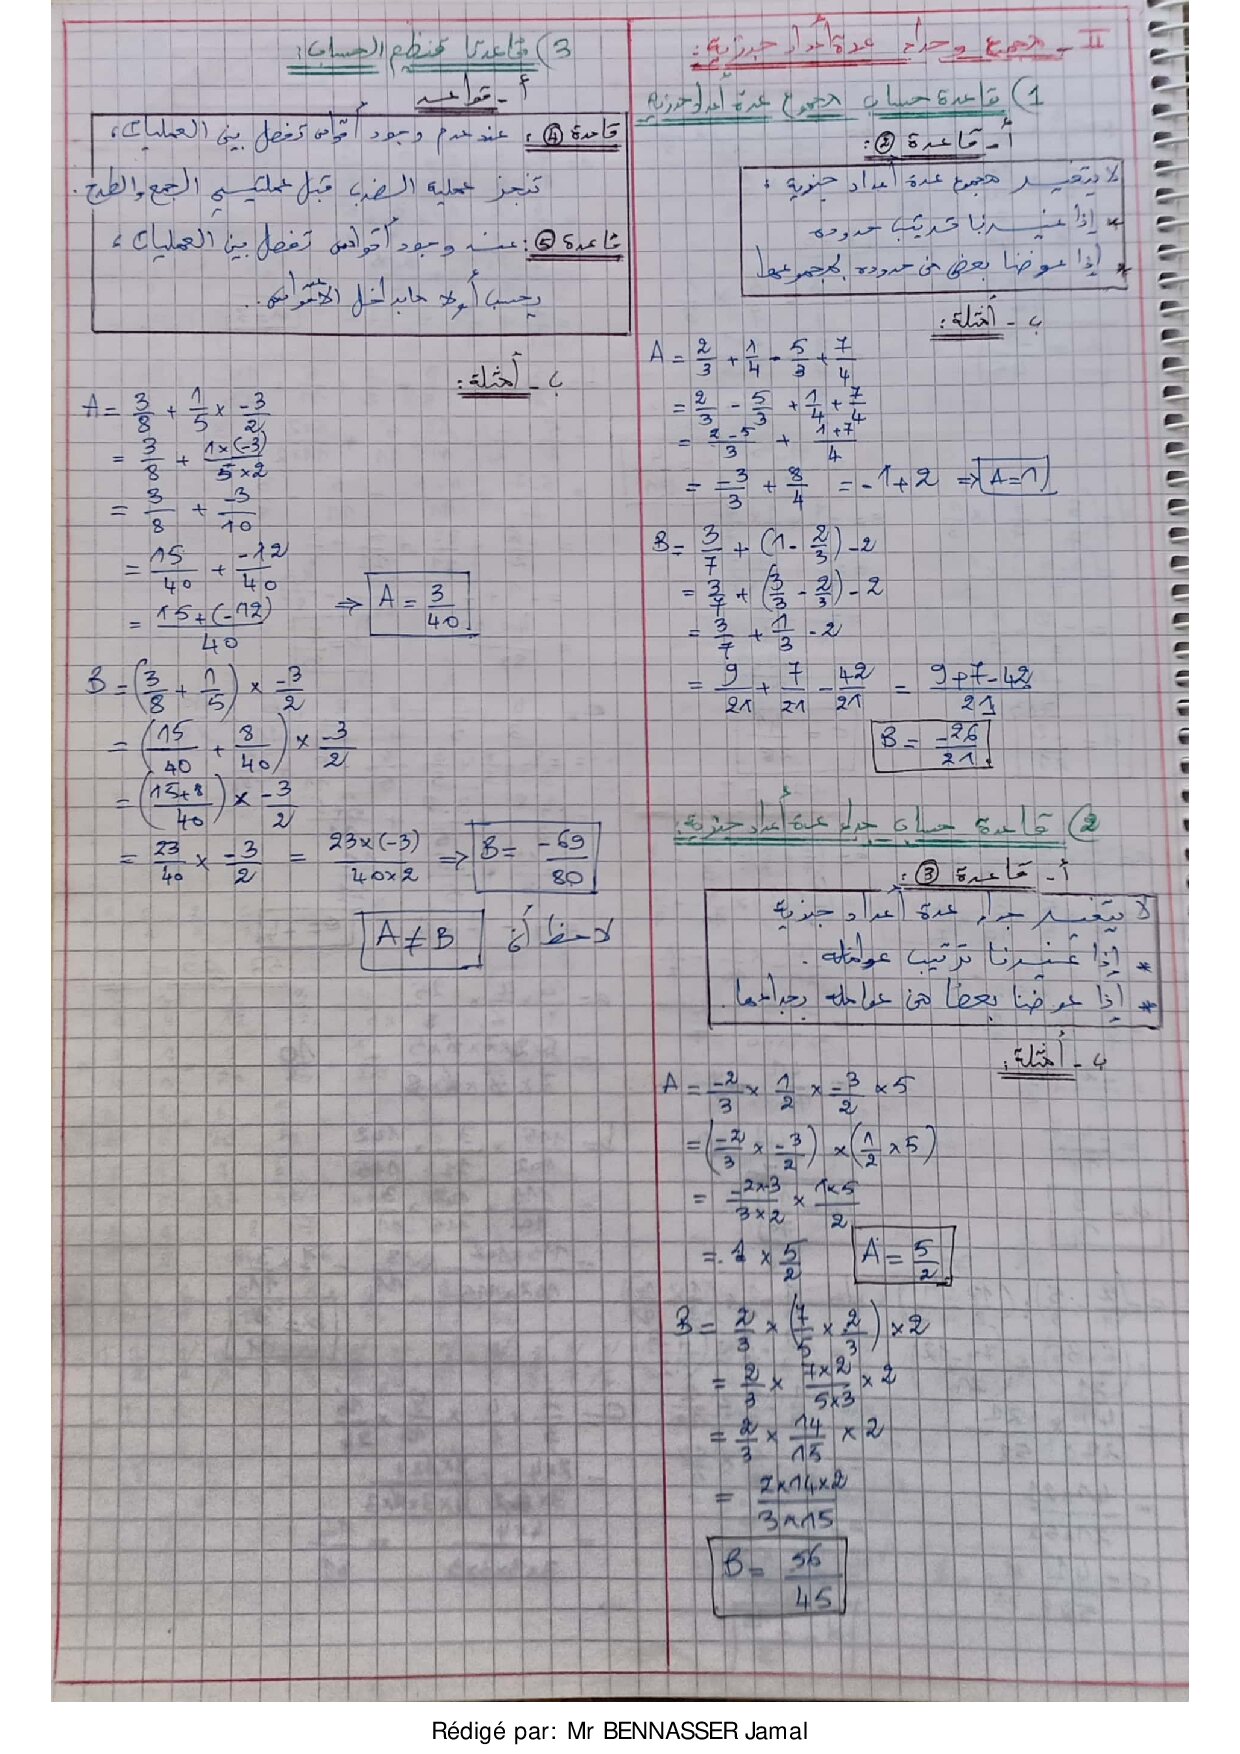 II - مجموع وجداء عدة أعداد جذرية:
1) قاعدة حساب مجموع عدة أعداد جذرية
أ - قاعدة ②:
لا يتغير مجموع عدة أعداد جذرية:
* إذا غيرنا ترتيب حدوده
* إذا عوضنا بعض من حدوده بمجموعها
ب - أمثلة:
A = 2/3 + 1/4 - 5/3 + 7/4
= 2/3 - 5/3 + 1/4 + 7/4
= (2-5)/3 + (1+7)/4
= -3/3 + 8/4 = -1+2 ⇒ A=1
B = 3/7 + (1 - 2/3) - 2
= 3/7 + (3/3 - 2/3) - 2
= 3/7 + 1/3 - 2
= 9/21 + 7/21 - 42/21 = (9+7-42)/21
B = -26/21
2) قاعدة حساب جداء عدة أعداد جذرية:
أ - قاعدة ③:
لا يتغير جداء عدة أعداد جذرية
* إذا غيرنا ترتيب عوامله.
* إذا عوضنا بعضا من عوامله بجداءها.
ب - أمثلة:
A = -2/3 × 1/2 × -3/2 × 5
= (-2/3 × -3/2) × (1/2 × 5)
= (-2×-3)/(3×2) × (1×5)/2
= 1 × 5/2 A = 5/2
B = 2/3 × (7/5 × 2/3) × 2
= 2/3 × (7×2)/(5×3) × 2
= 2/3 × 14/15 × 2
= (2×14×2)/(3×15)
B = 56/45
3) قاعدتا تنظيم الحساب:
أ - قواعد
قاعدة ④: عند عدم وجود أقواس تفصل بين العمليات،
تنجز عملية الضرب قبل عمليتي الجمع والطرح.
قاعدة ⑤: عند وجود أقواس تفصل بين العمليات،
يحسب أولا ما بداخل الأقواس..
ب - أمثلة:
A = 3/8 + 1/5 × -3/2
= 3/8 + (1×(-3))/(5×2)
= 3/8 + -3/10
= 15/40 + -12/40
= (15+(-12))/40 ⇒ A = 3/40
B = (3/8 + 1/5) × -3/2
= (15/40 + 8/40) × -3/2
= ((15+8)/40) × -3/2
= 23/40 × -3/2 = (23×(-3))/(40×2) ⇒ B = -69/80
لاحظ أن A ≠ B
Rédigé par: Mr BENNASSER Jamal